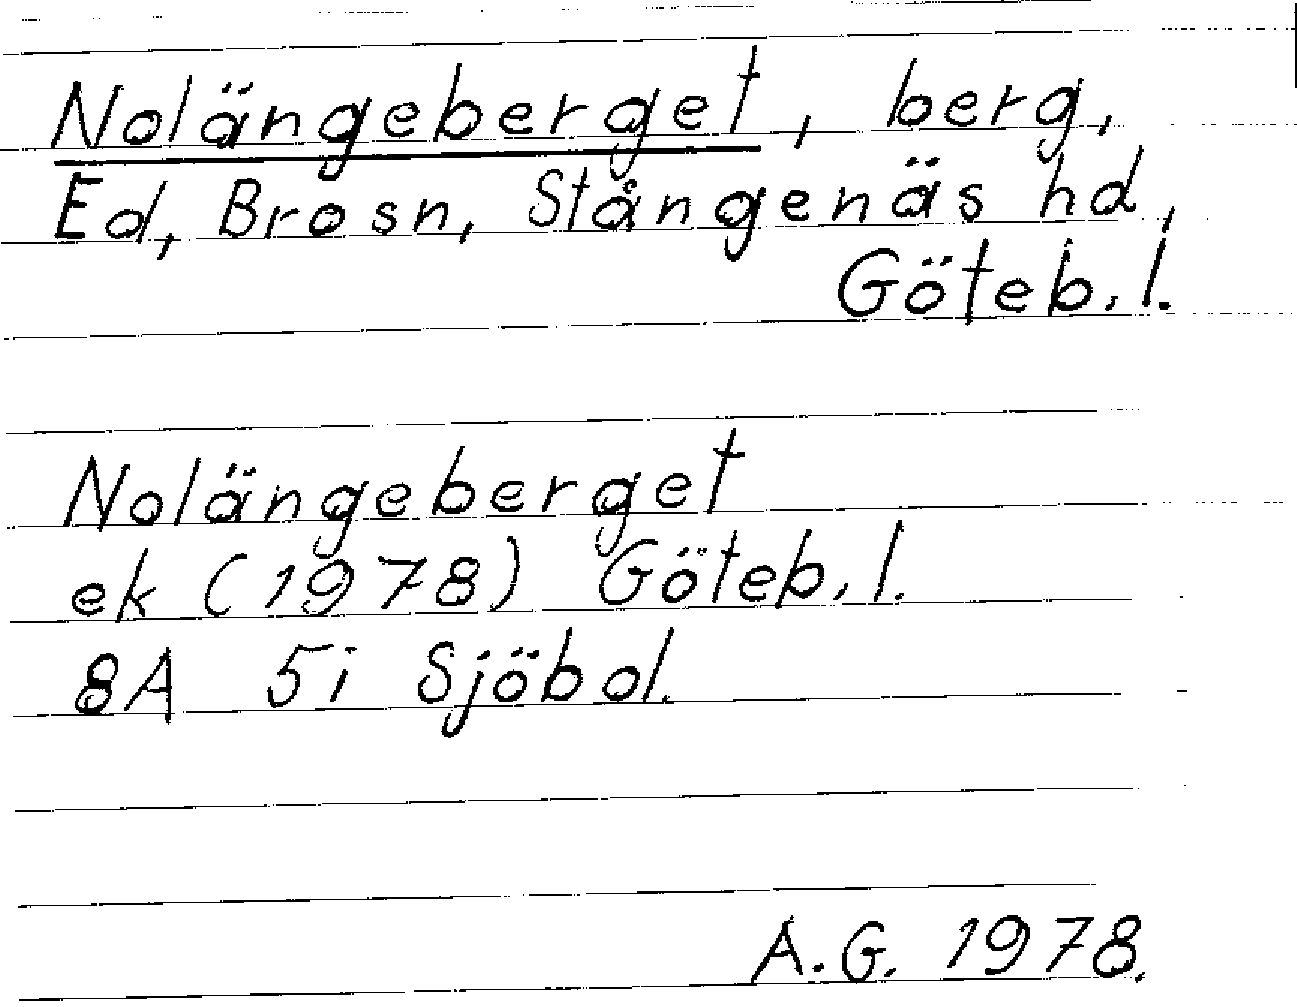 Nolängeberget, berg,
Ed, Brosn, Stångenäs hd,
Göteb. l.
Nolängeberget
ek (1978) Göteb. l.
8A 5i Sjöbol.
A.G. 1978.